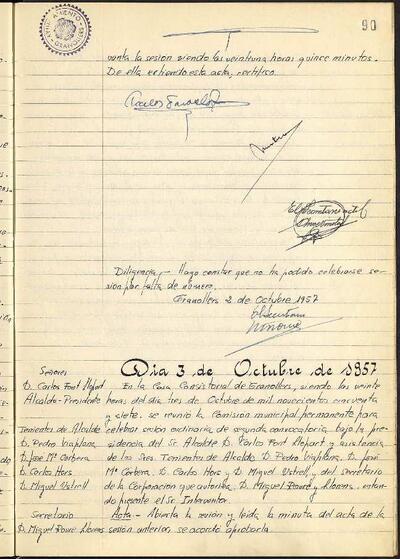 90
AJUNTAMENT
GRANOLLERS
vanta la sesion siendo las veintiuna horas quince minutos.
De ella extiendo esta acta, certifico.
Diligencia,- Hago constar que no ha podido celebrarse se-
sion por falta de número.
Granollers 2 de Octubre 1957
Día 3 de Octubre de 1957
Señores
D. Carlos Font Llopart
Alcalde-Presidente
Tenientes de Alcalde
D. Pedro Viaplana
D. José Mª Corbera
D. Carlos Hors
D. Miguel Ustrell
Secretario
D. Miguel Bouré Llorens
En la Casa Consistorial de Granollers, siendo las veinte
horas del día tres de Octubre de mil novecientos cincuenta
y siete, se reunió la Comision municipal permanente para
celebrar sesion ordinaria de segunda convocatoria bajo la pre-
sidencia del Sr. Alcalde D. Carlos Font Llopart y asistencia
de los Sres. Tenientes de Alcalde D. Pedro Viaplana, D. José
Mª Corbera, D. Carlos Hors y D. Miguel Ustrell y del Secretario
de la Corporación que autoriza, D. Miguel Bouré y Llorens, estan-
do presente el Sr. Interventor.
Acta - Abierta la sesion y leída la minuta del acta de la
sesion anterior, se acordó aprobarla